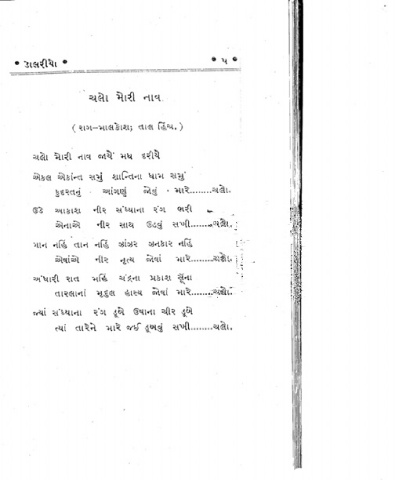 • ડાલરીયો • ૫ •
ચલો મોરી નાવ
( રાગ-માલકોશ; તાલ હિંચ. )
ચલો મોરી નાવ જાયેં મધ દરીયે
એકલ એકાંન્ત સમું શાન્તિના ધામ સમું
કુદરતનું આંગણું જોવું મારે........ચલો.
ઉડે આકાશ નીર સંધ્યાના રંગ ભરી
એનાએ નીર સાથ ઉડવું સખી.......ચલો.
ગાન નહિં તાન નહિં ઝાંઝર ઝનકાર નહિં
એવાંએ નીર નૃત્ય જોવાં મારે........ચલો.
અંધારી રાત મહિં ચંદ્રના પ્રકાશ સૂના
તારલાનાં મૃદુલ હાસ્ય જોવાં મારે........ચલો.
જ્યાં સંધ્યાના રંગ ડૂબે ઉષાના ચીર ડૂબે
ત્યાં તારેને મારે જઈ ડૂબવું સખી.....ચલો.